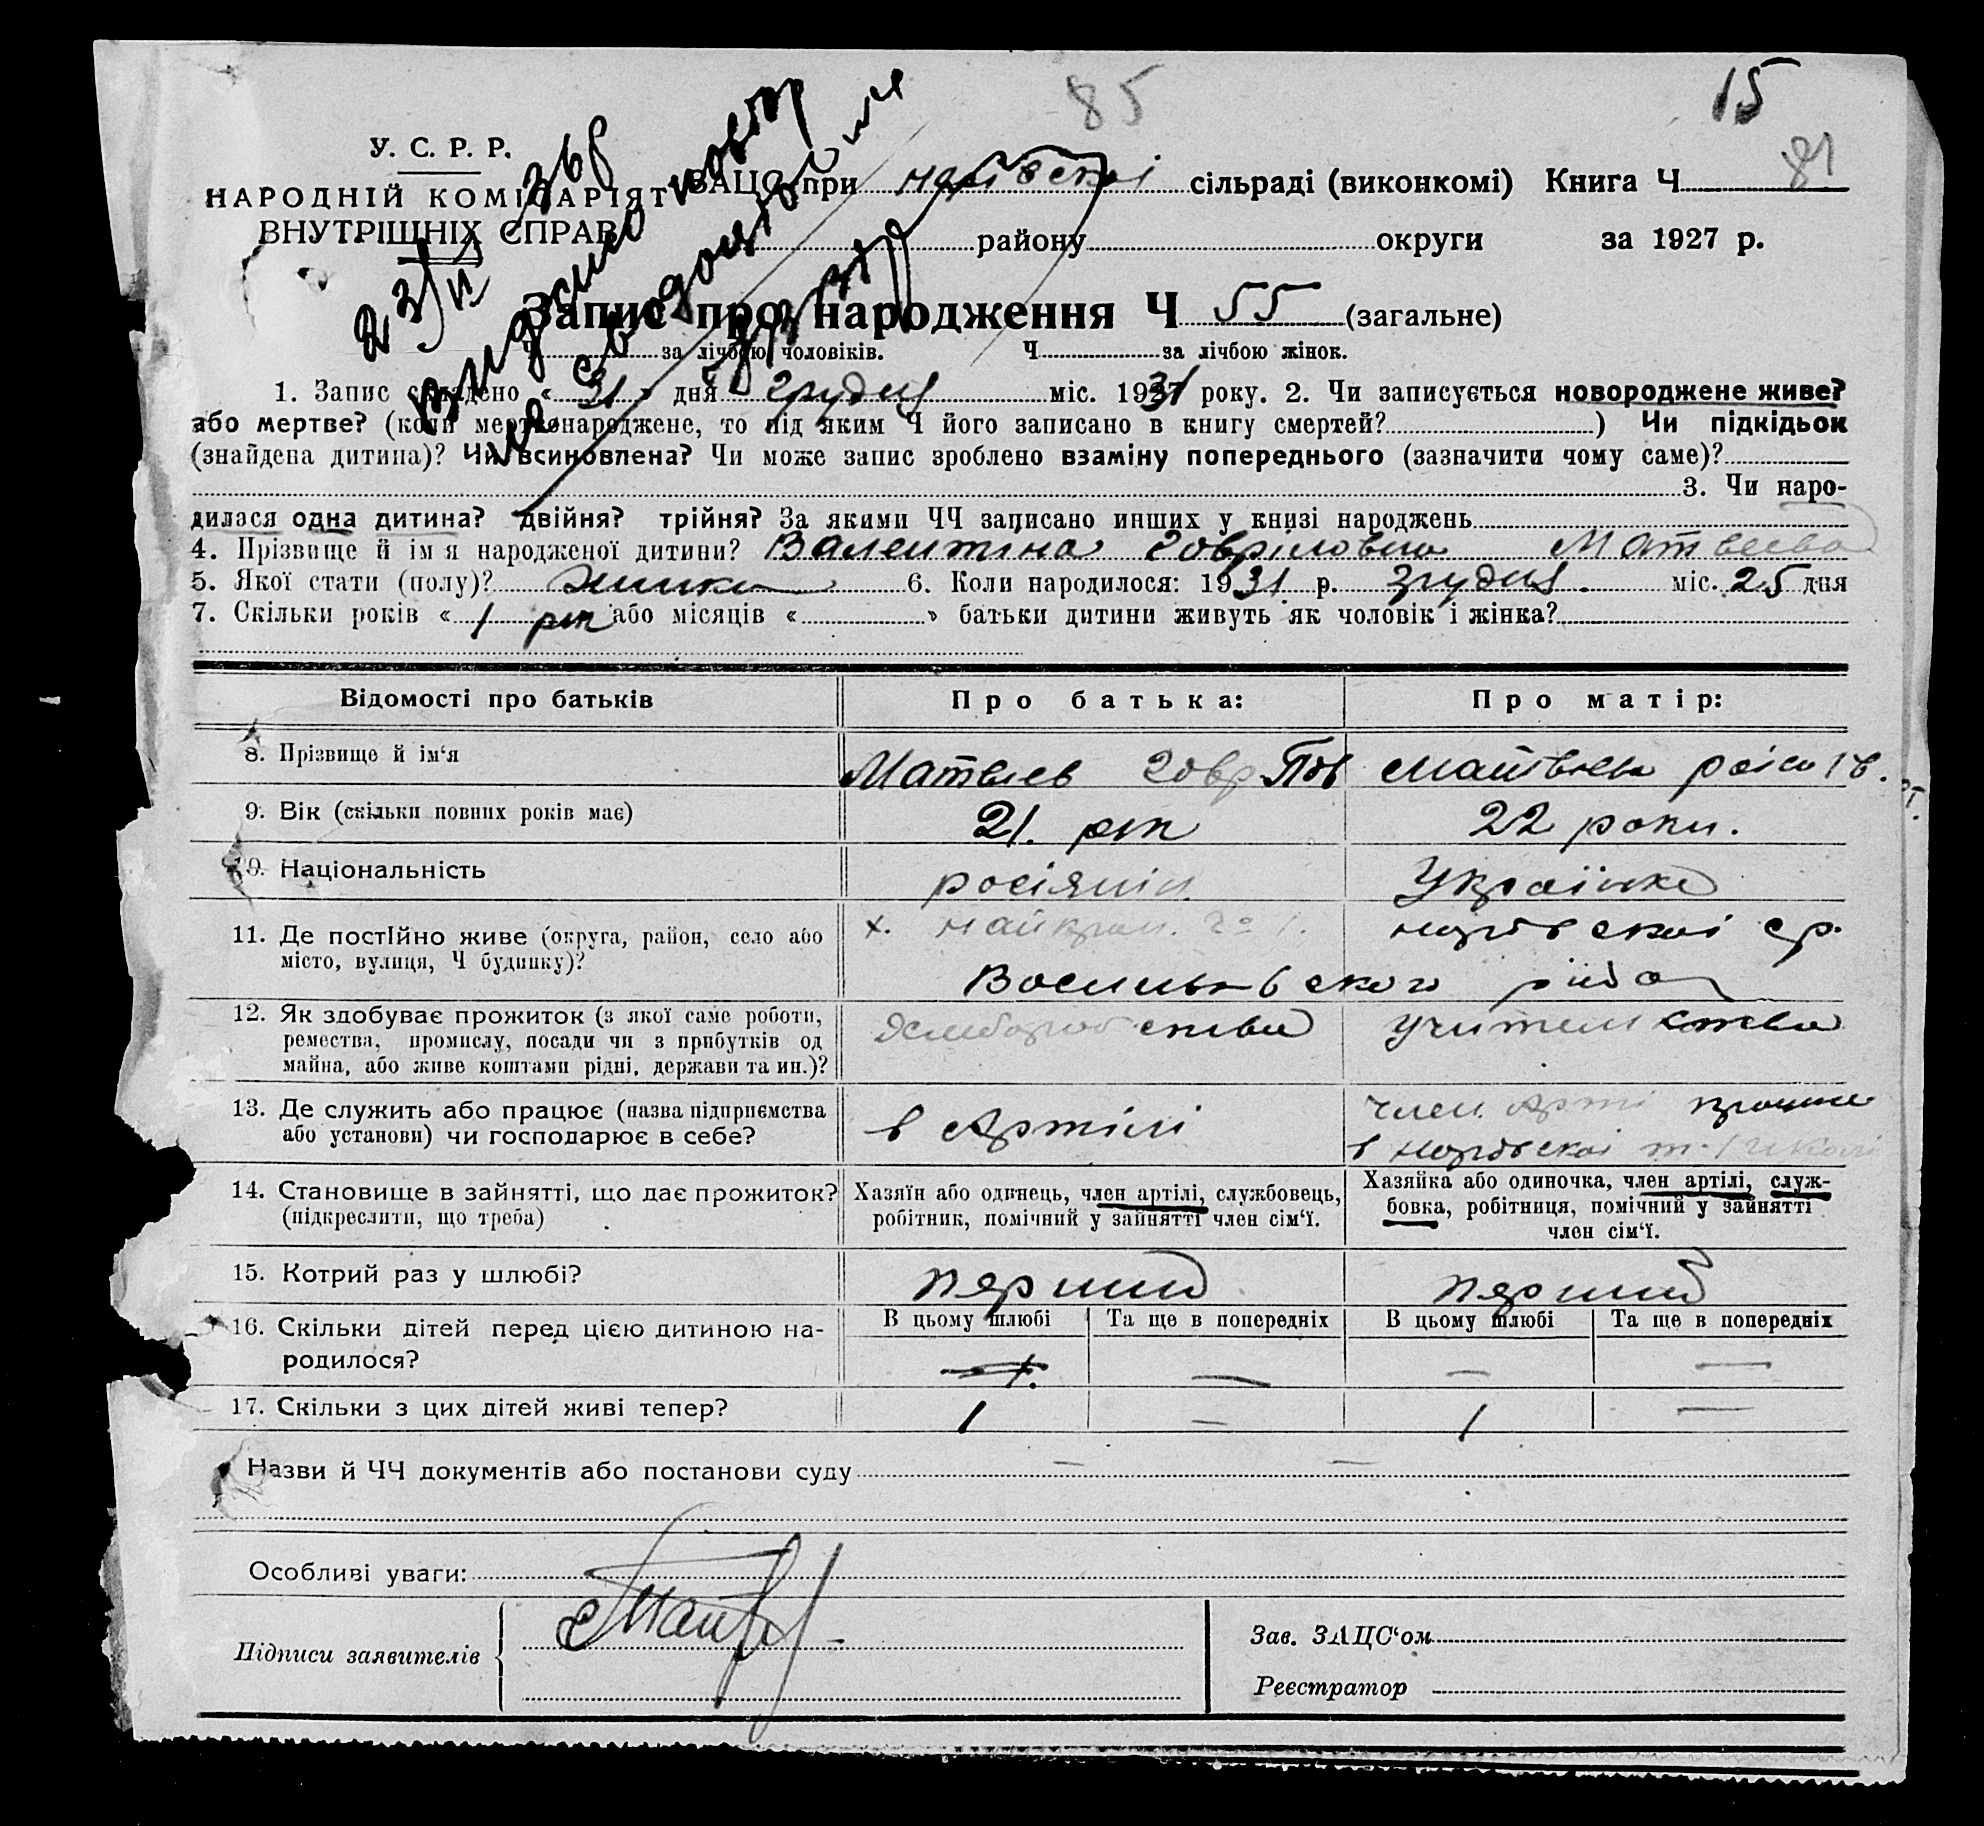 85
15
81
У. С. Р. Р.
НАРОДНІЙ КОМІСАРІЯТ
ВНУТРІШНІХ СПРАВ
ЗАЦС при сільраді (виконкомі) Книга Ч.
району округи за 1927 р.
23/II 36 р
видано повтор
свидоцтво
Запис про народження Ч 55 (загальне)
Ч за лічбою чоловіків. Ч за лічбою жінок.
1. Запис складено « 31 » дня грудня міс. 1931 року. 2. Чи записується новороджене живе?
або мертве? (коли мертвонароджене, то під яким Ч його записано в книгу смертей? ) Чи підкідьок
(знайдена дитина)? Чи всиновлена? Чи може запис зроблено взаміну попереднього (зазначити чому саме)?
3. Чи наро-
дилася одна дитина? двійня? трійня? За якими ЧЧ записано инших у книзі народжень
4. Прізвище й ім я народженої дитини? Валентина Говріловна Матвеева
5. Якої стати (полу)? жинка 6. Коли народилося: 1931 р. грудня міс. 25 дня
7. Скільки років « 1 рік або місяців « » батьки дитини живуть як чоловік і жінка?
Відомості про батьків Про батька: Про матір:
8. Прізвище й ім‘я Матвеев Говр. Пав Матвеева
9. Вік (скільки повних років має) 21. рік 22 роки.
10. Національність росіянін. Українка
11. Де постійно живе (округа, район, село або
місто, вулиця, Ч будинку)?
х.
Васильківского район
12. Як здобуває прожиток (з якої саме роботи,
ремества, промислу, посади чи з прибутків од
майна, або живе коштами рідні, держави та ин.)?
хлеборобства учительства
13. Де служить або працює (назва підприємства
або установи) чи господарює в себе?
в Артілі
член. Арті працює
в школі
14. Становище в зайнятті, що дає прожиток?
(підкреслити, що треба)
Хазяїн або одинець, член артілі, службовець,
робітник, помічний у зайнятті член сім‘ї.
Хазяйка або одиночка, член артілі, служ-
бовка, робітниця, помічний у зайнятті
член сім‘ї.
15. Котрий раз у шлюбі? перший перший
16. Скільки дітей перед цією дитиною на-
родилося?
В цьому шлюбі Та ще в попередніх В цьому шлюбі Та ще в попередніх
— — — —
17. Скільки з цих дітей живі тепер? 1 — 1 —
Назви й ЧЧ документів або постанови суду — —
Особливі уваги:
Підписи заявителів
Зав. ЗАЦС‘ом
Реєстратор